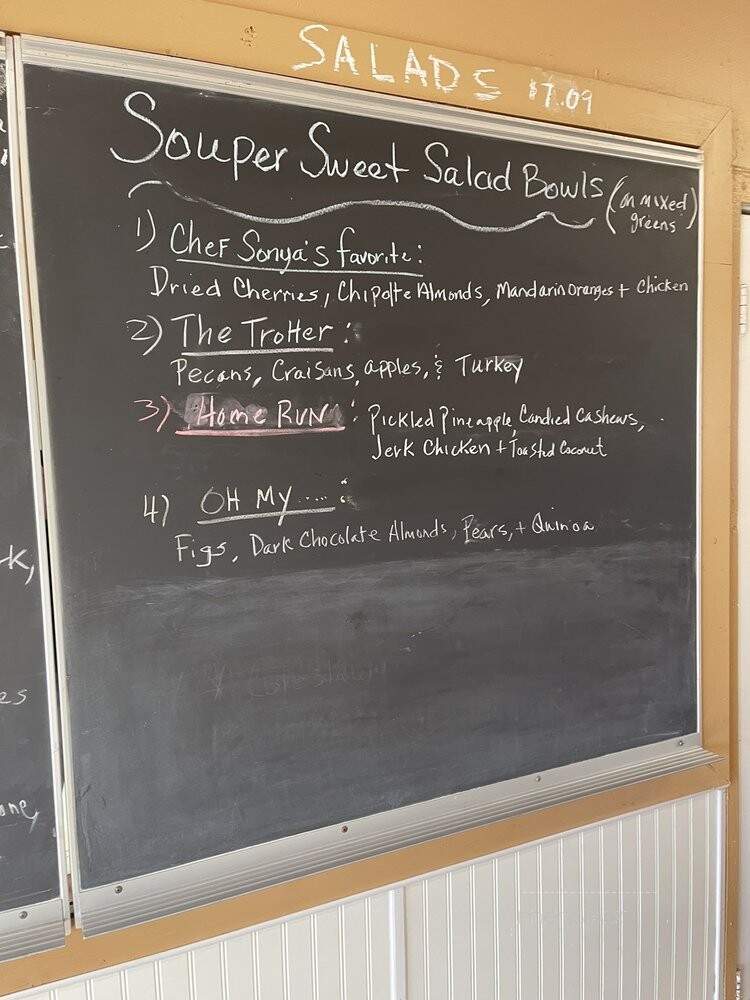 SALADS $7.09
Souper Sweet Salad Bowls (on mixed
greens)
1) Chef Sonya's favorite:
Dried Cherries, Chipolte Almonds, Mandarin Oranges + Chicken
2) The Trotter:
Pecans, Craisans, apples, & Turkey
3) Home Run: Pickled Pineapple, Candied Cashews,
Jerk Chicken + Toasted Coconut
4) OH MY....:
Figs, Dark Chocolate Almonds, Pears, + Quinoa